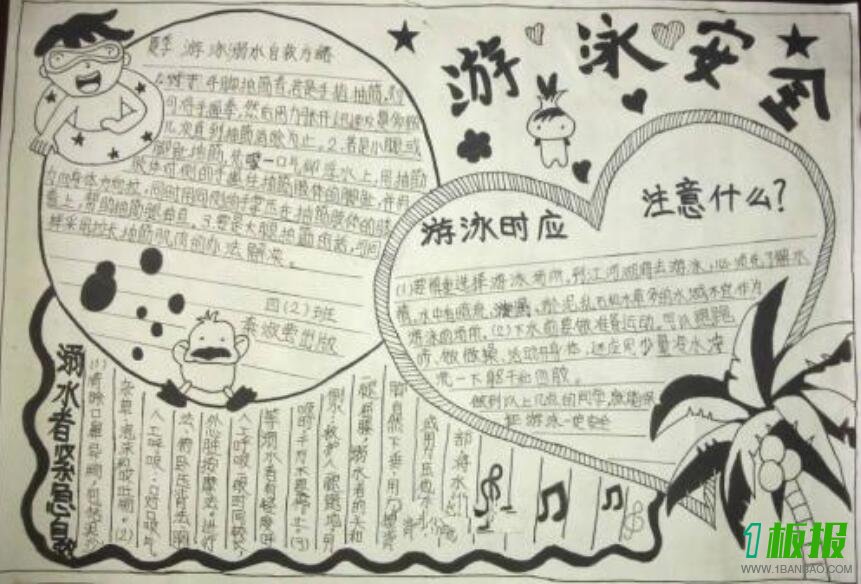 游泳安全
夏季 游泳溺水自救方略
1.对于手脚抽筋者,若是手指抽筋,则
可将手握拳,然后用力张开,迅速反复多做
几次直到抽筋消除为止。2.若是小腿或
脚趾抽筋,先吸一口气仰浮水上,用抽筋
肢体对侧的手握住抽筋肢体的脚趾,并用
力向身体方向拉,同时用同侧的手掌压在抽筋肢体的膝
盖上,帮助抽筋腿伸直。3.要是大腿抽筋的话,可同
样采用拉长抽筋肌肉的办法解决。
四(2)班
出版
游泳时应
注意什么?
(1)要慎重选择游泳场所,到江河湖海去游泳,必须先了解水
情,水中有暗流、漩涡、淤泥、乱石和水草多的水域不宜作为
游泳的场所。(2)下水前要做准备运动。可以跑跑
步、做做操,活动开身体,还应用少量冷水浇
洗一下躯干和四肢。
做到以上几点的同学,就能保
证游泳一定安全
溺水者紧急自救
(1)清除口鼻异物,包括泥沙
杂草、泡沫和呕吐物。(2)
人工呼吸:口对口吹气
法、俯卧压背法、胸
外心脏按摩法。进行
人工呼吸
等溺水者
(3)
倒水:救护人
脚自然下垂,用
部将水
1板报
WWW.1BANBAO.COM